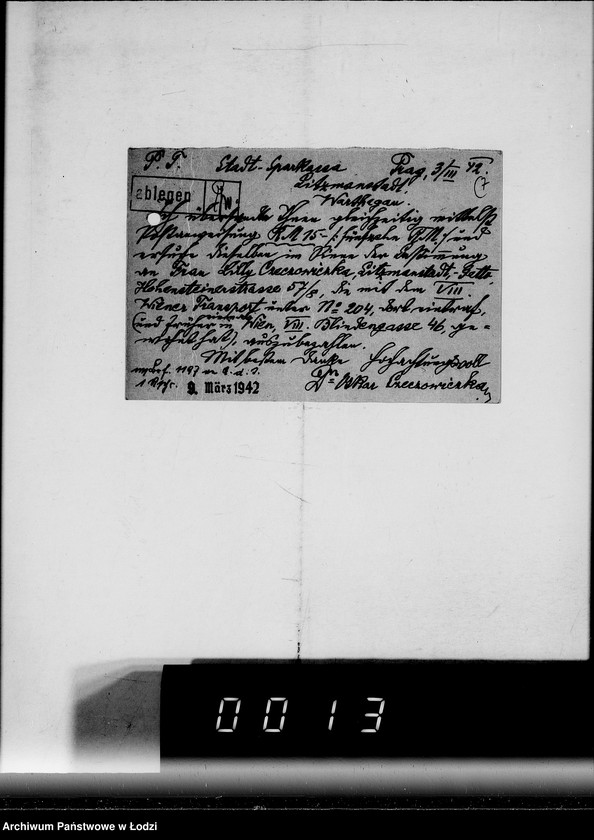 P. T. Stadt-Sparkassa Prag, 3/III 42.
Litzmannstadt
Warthegau.
ablegen
Ich übersende Ihnen gleichzeitig mittelst
Postanweisung R.M 15.- /: fünfzehn R.M./ und
ersuche dieselben im Sinne der Bestimmung
an Frau Lilly Czeczowiczka, Litzmannstadt-Getto
Hohensteinerstrasse 57/8, die mit dem VIII.
Wiener Transport unter No 204, dort eintraf,
(und früher in Wien, VIII. Blindengasse 46, ge-
wohnt hat), auszubezahlen.
Mit bestem Danke Hochachtungsvoll
Dr Oskar Czeczowiczka
9. März 1942
0013
Archiwum Państwowe w Łodzi